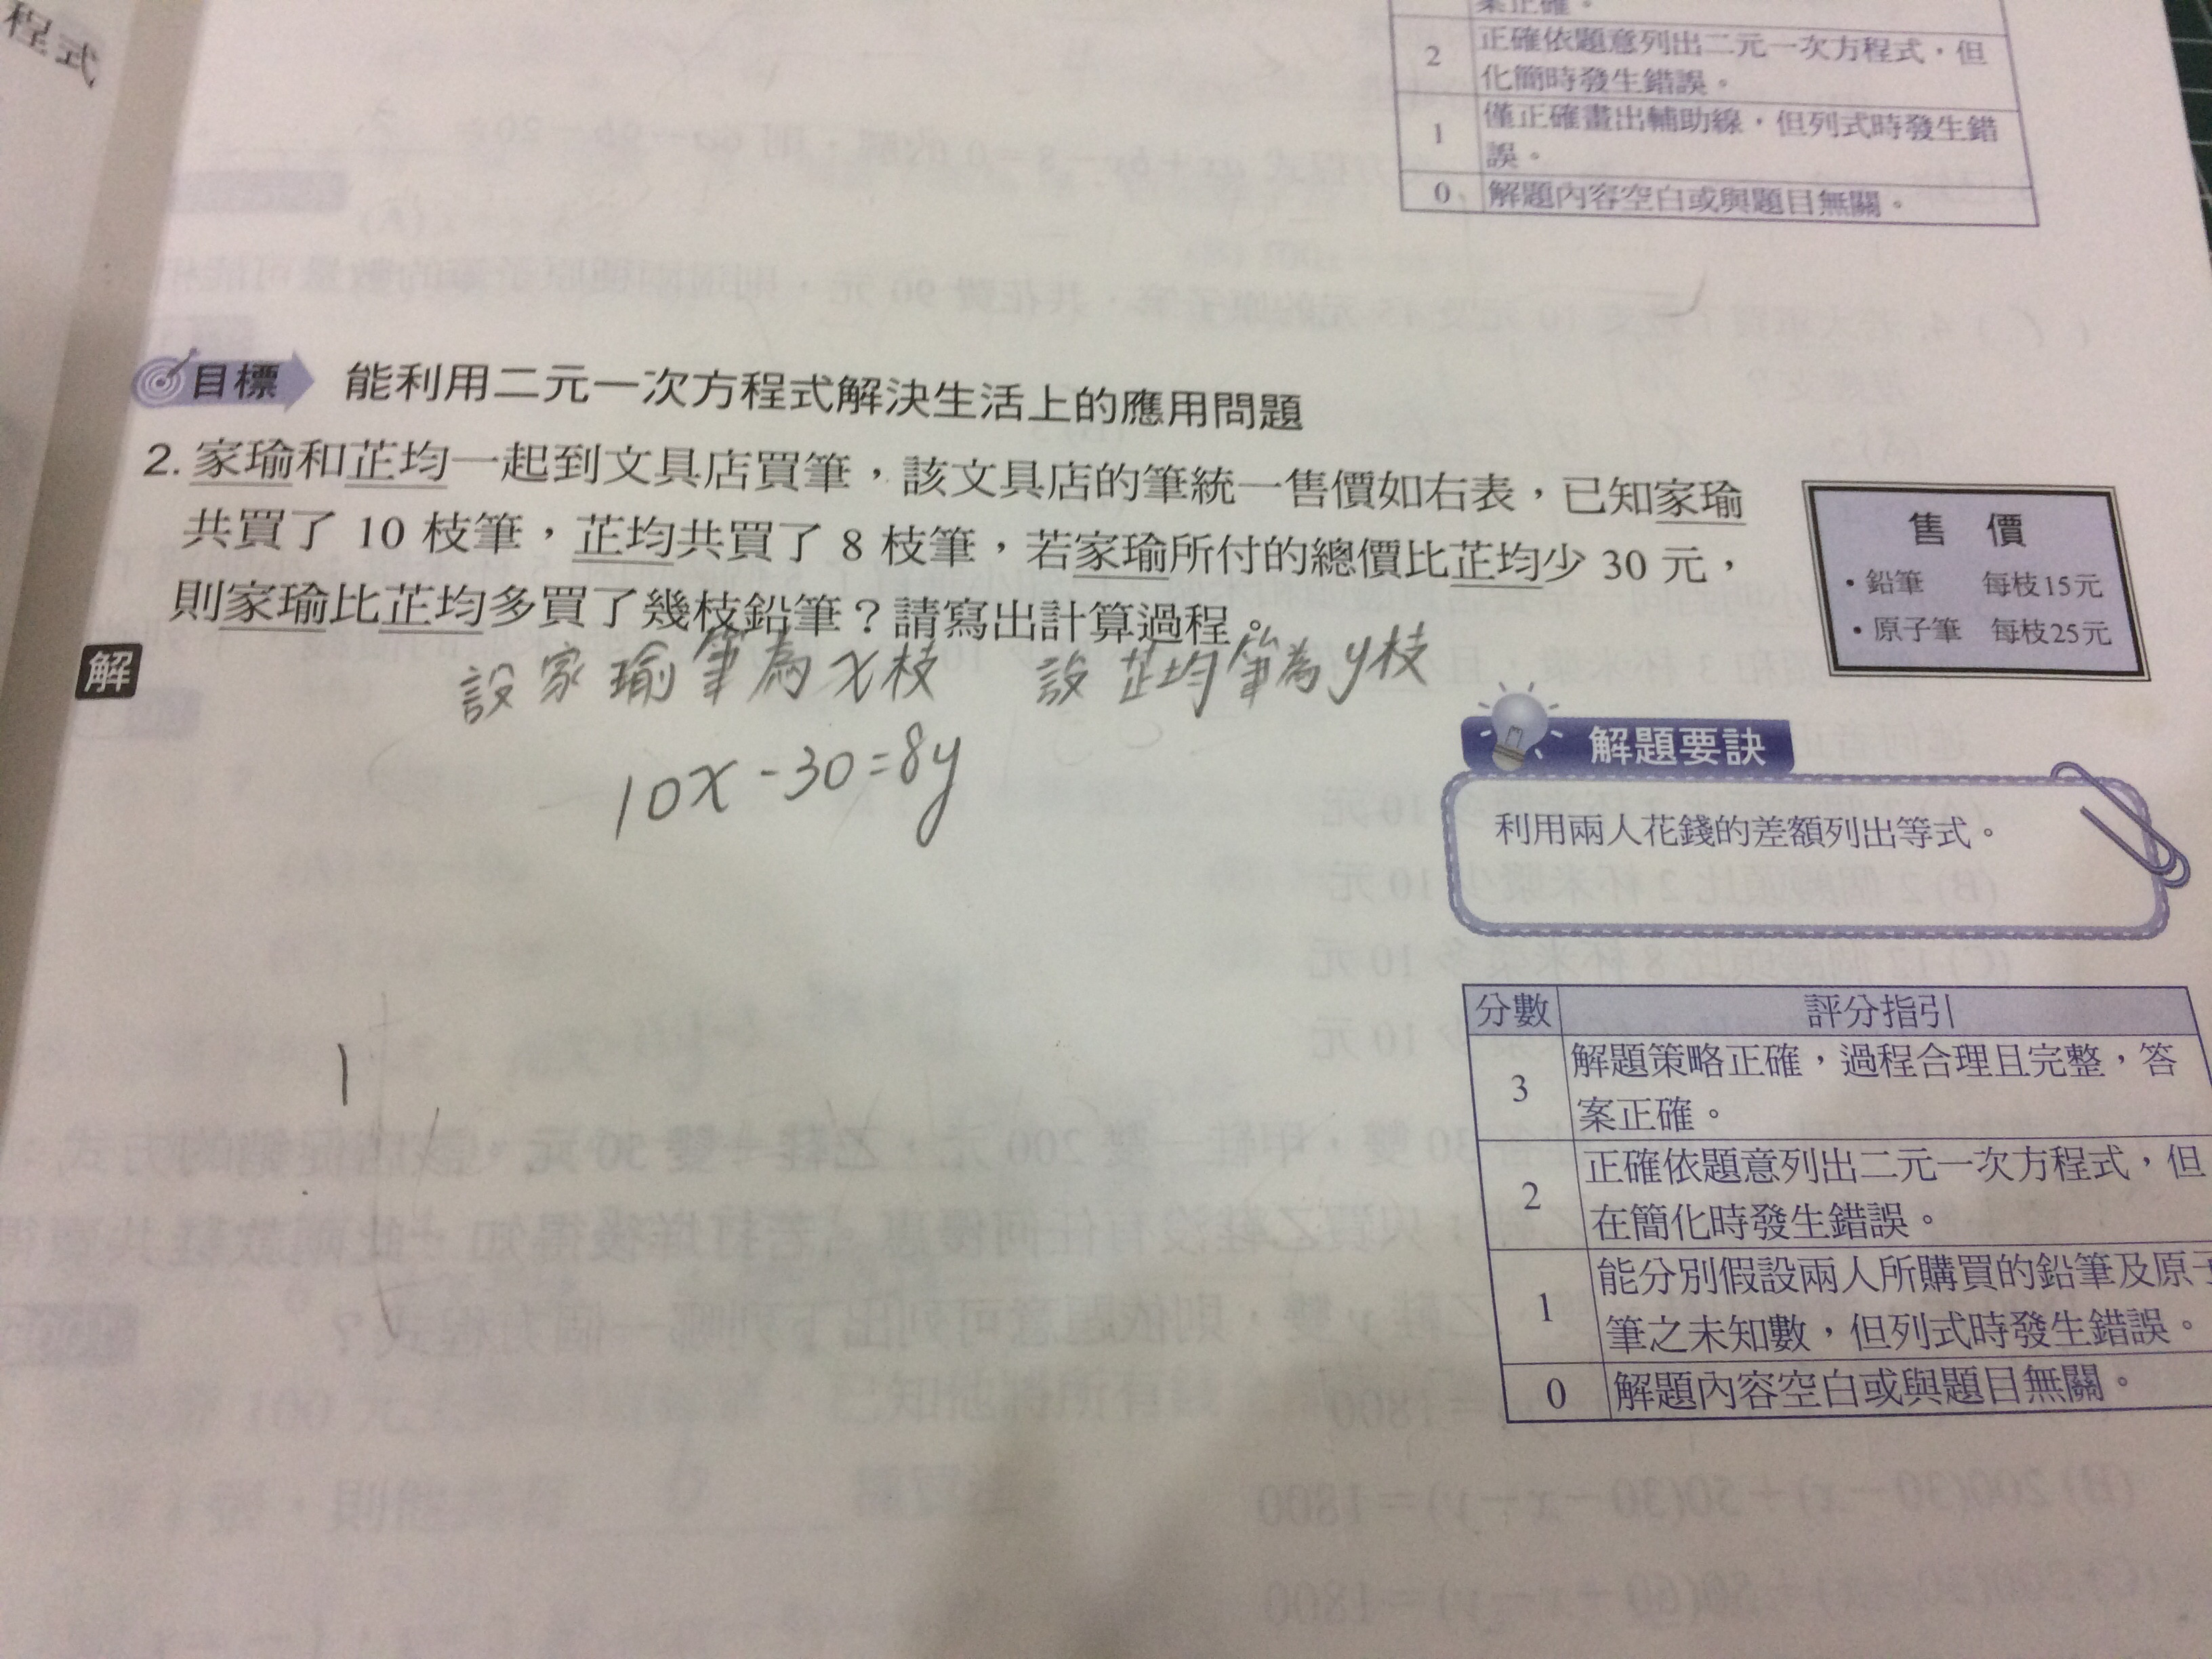 程式
案正確。
2 正確依題意列出二元一次方程式,但
化簡時發生錯誤。
1 僅正確畫出輔助線,但列式時發生錯
誤。
0 解題內容空白或與題目無關。
目標 能利用二元一次方程式解決生活上的應用問題
2. 家瑜和芷均一起到文具店買筆,該文具店的筆統一售價如右表,已知家瑜
共買了 10 枝筆,芷均共買了 8 枝筆,若家瑜所付的總價比芷均少 30 元,
則家瑜比芷均多買了幾枝鉛筆?請寫出計算過程。
售 價
• 鉛筆 每枝15元
• 原子筆 每枝25元
解
設家瑜筆為x枝 設芷均筆為y枝
10x-30=8y
解題要訣
利用兩人花錢的差額列出等式。
分數 評分指引
3 解題策略正確,過程合理且完整,答
案正確。
2 正確依題意列出二元一次方程式,但
在簡化時發生錯誤。
1 能分別假設兩人所購買的鉛筆及原子
筆之未知數,但列式時發生錯誤。
0 解題內容空白或與題目無關。